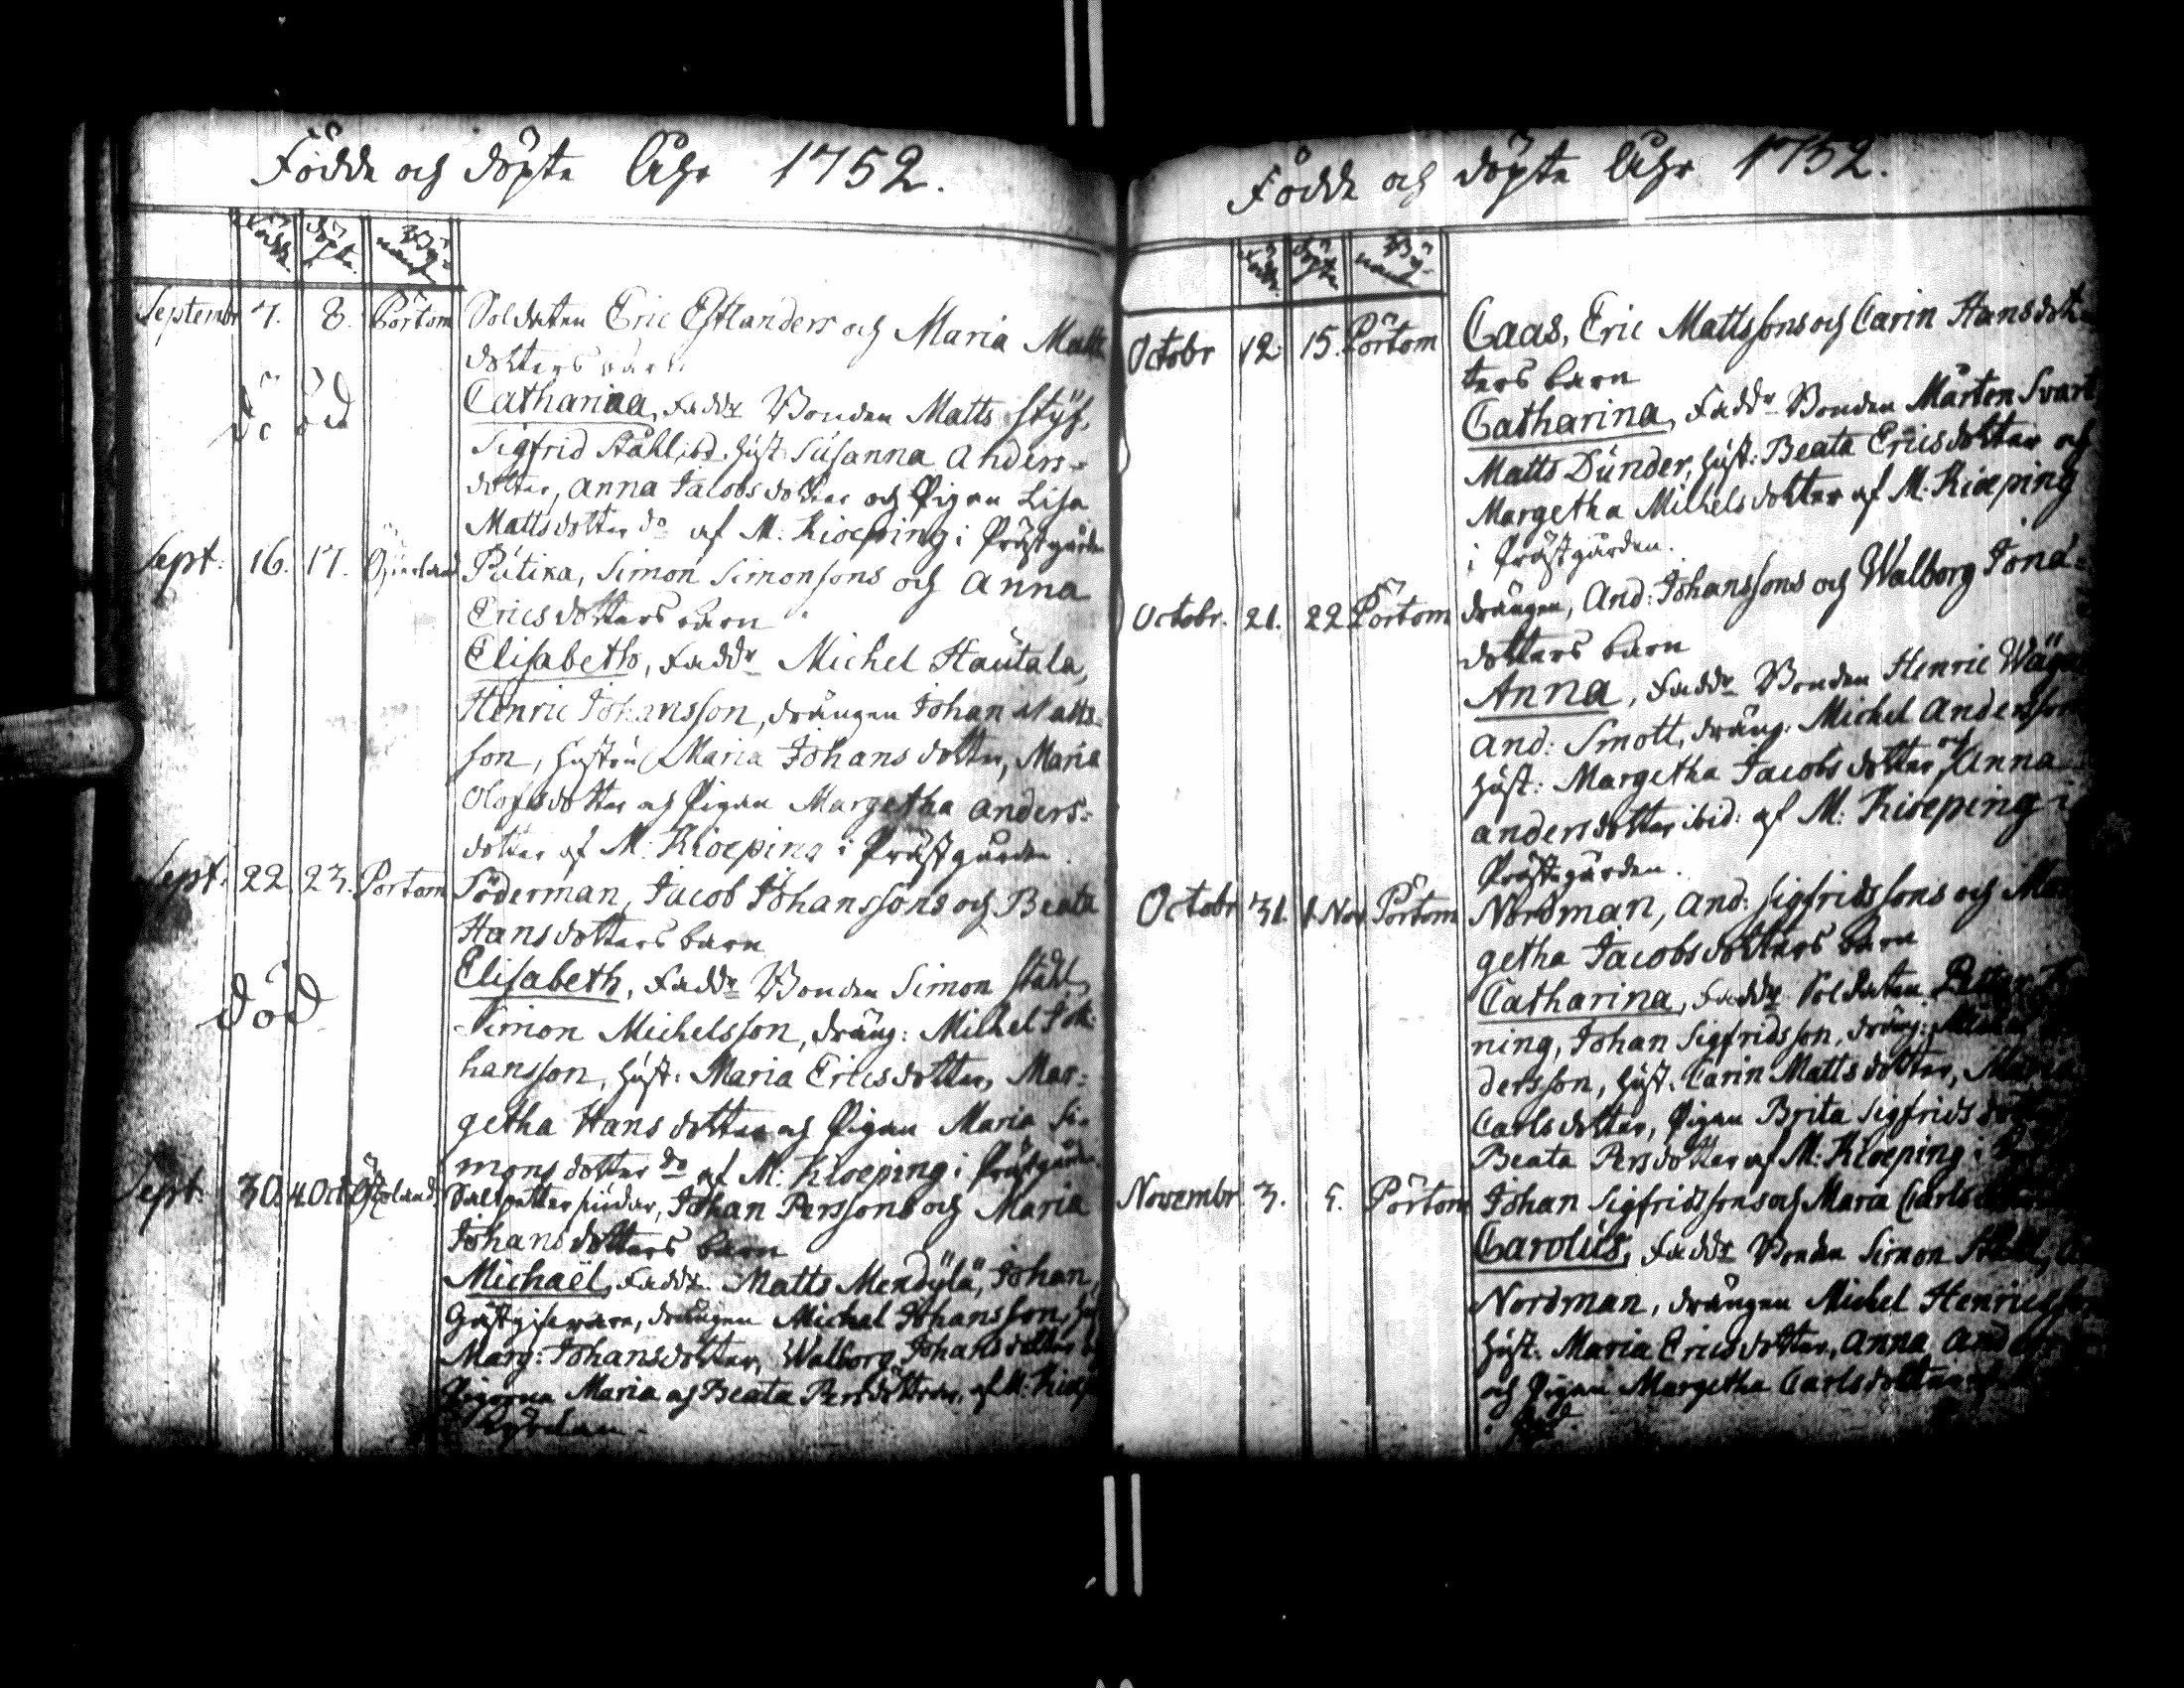 Födde och döpte Åhr 1752.
Födde döpte By namn
Septembr 7. 8. Pörtom Soldaten Eric Estlanders och Maria Matts
dotters barn
död Catharina, Faddr Bonden Matts Styf,
Sigfrid Ståhl ibd. hust: Susanna Anders-
dotter, Anna Jacobsdotter och Pigan Lisa
Mattsdotter do af M. Kioeping i Prästgården
Sept: 16. 17. Pútika, Simon Simonsons och Anna
Ericsdotters barn
Elisabeth, Faddr Michel Haútala,
Henric Johansson, drängen Johan Matts-
son, hustru Maria Johansdotter, Maria
Olofsdotter och Pigan Margetha Anders-
dotter af M. Kioeping i Prästgården.
Sept: 22. 23. Pörtom Söderman, Jacob Johanssons och Beata
Hansdotters barn
död Elisabeth, Faddr Bonden Simon Ståhl,
Simon Michelsson, dräng: Michel Jo-
hansson, hust: Maria Ericsdotter, Mar-
getha Hansdotter och Pigan Maria Si-
monsdotter do af M: Kioeping i Prästgården.
Sept: 30. 4. Oct. Saltpettersiudar, Johan Perssons och Maria
Johansdotters barn
Michaël, Faddr. Matts Mendÿlä, Johan
Gästgifware, drängen Michel Johansson, hust
Marg: Johansdotter, Walborg Johansdotter
Pigorna Maria och Beata Persdöttrar, af M: Kioep
Födde och döpte Åhr 1752.
Födde döpte By namn
Octobr 12. 15. Pörtom Caas, Eric Mattssons och Carin Hansdot-
ters barn
Catharina, Faddr Bonden Mårten Svart
Matts Dúnder, hust: Beata Ericsdotter och
Margetha Michelsdotter af M: Kioeping
i Prästgården.
Octobr. 21. 22. Pörtom drängen, And: Johanssons och Walborg Jona-
dotters barn
Anna, Faddr Bonden Henric
And: Smott, dräng: Michel Andersson
hust: Margetha Jacobsdotter och Anna
Andersdotter ibid: af M: Kioeping i
Prästgården.
Octobr 31. 1. Nov Pörtom Nordman, And: Sigfridssons och Mar
getha Jacobsdotters barn
Catharina, Faddr Soldaten Petter
ning, Johan Sigfridsson, dräng:
dersson, hust. Carin Mattsdotter,
Carlsdotter, Pigan Brita Sigfrids
Beata Persdotter af M: Kioeping i
Novembr 3. 5. Pörtom Johan Sigfridssons och Maria Carls
Carolús, Faddr Bonden Simon Ståhl,
Nordman, drängen Michel Henricsson
hust: Maria Ericsdotter, Anna And
och Pigan Margetha Carlsdotter